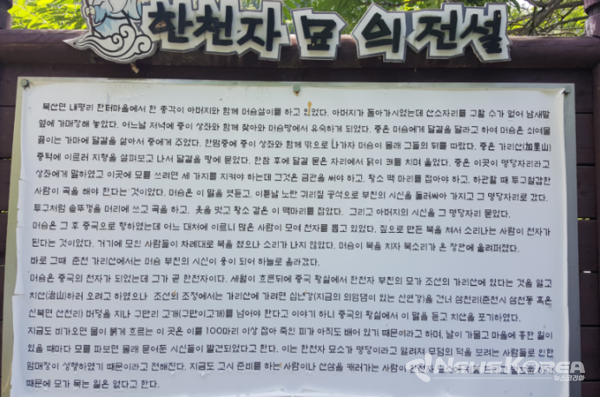 한천자 묘의전설
북산면 내평리 한터마을에서 한 총각이 아버지와 함께 머슴살이를 하고 있었다. 아버지가 돌아가시었는데 산소자리를 구할 수가 없어 남새밭
옆에 가매장해 놓았다. 어느날 저녁에 중이 상좌와 함께 찾아와 머슴방에서 유숙하게 되었다. 중은 머슴에게 달걀을 달라고 하여 머슴은 쇠여물
끓이는 가마에 달걀을 삶아서 중에게 주었다. 한밤중에 중이 상좌와 함께 밖으로 나가자 머슴이 몰래 그들의 뒤를 따랐다. 중은 가리산(加里山)
중턱에 이르러 지형을 살펴보고 나서 달걀을 땅에 묻었다. 한참 후에 달걀 묻은 자리에서 닭이 홰를 치며 울었다. 중은 이곳이 명당자리라고
상좌에게 말하였고 이곳에 묘를 쓰려면 세 가지를 지켜야 하는데 그것은 금관을 써야 하고, 황소 백 마리를 잡아야 하고, 하관할 때 투구철갑한
사람이 곡을 해야 한다는 것이었다. 머슴은 이 말을 엿듣고, 이튿날 노란 귀리짚 공석으로 부친의 시신을 둘러싸아 가지고 그 명당자리로 갔다.
투구처럼 솥뚜껑을 머리에 쓰고 곡을 하고, 옷을 벗고 황소 같은 이 백마리를 잡았다. 그리고 아버지의 시신을 그 명당자리 묻었다.
머슴은 그 후 중국으로 향하였는데 어느 대처에 이르니 많은 사람이 모여 천자를 뽑고 있었다. 짚으로 만든 북을 쳐서 소리나는 사람이 천자가
된다는 것이었다. 거기에 모인 사람들이 차례대로 북을 쳤으나 소리가 나지 않았다. 머슴이 북을 치자 북소리가 온 장안에 울려퍼졌다.
바로 그때 춘천 가리산에서는 머슴 부친의 시신이 용이 되어 하늘로 올라갔다.
머슴은 중국의 천자가 되었는데 그가 곧 한천자이다. 세월이 흐른뒤에 중국 황실에서 한천자 부친의 묘가 조선의 가리산에 있다는 것을 알고
치산(治山)하러 오려고 하였으나 조선의 조정에서는 가리산에 가려면 십년강(지금의 의암댐이 있는 신연강)을 건너 삼천리(춘천시 삼천동 혹은
신북면 산천리) 버덩을 지나 구만리 고개(구만이고개)를 넘어야 한다고 이야기 하니 중국의 황실에서 이 말을 듣고 치산을 포기하였다.
지금도 비가오면 물이 붉게 흐르는 이 곳은 이를 100마리 이상 잡아 죽인 피가 아직도 배어 있기 때문이라고 하며, 날이 가물고 마을에 흉한 일이
있을 때마다 묘를 파보면 몰래 묻어둔 시신들이 발견되었다고 한다. 이는 한천자 묘소가 명당이라고 알려져 무덤의 덕을 보려는 사람들로 인한
암매장이 성행하였기 때문이라고 전해진다. 지금도 고시 준비를 하는 사람이나 산삼을 캐러가는 사람이 한천자
때문에 묘가 묵는 일은 없다고 한다.
NewsKorea
뉴스코리아